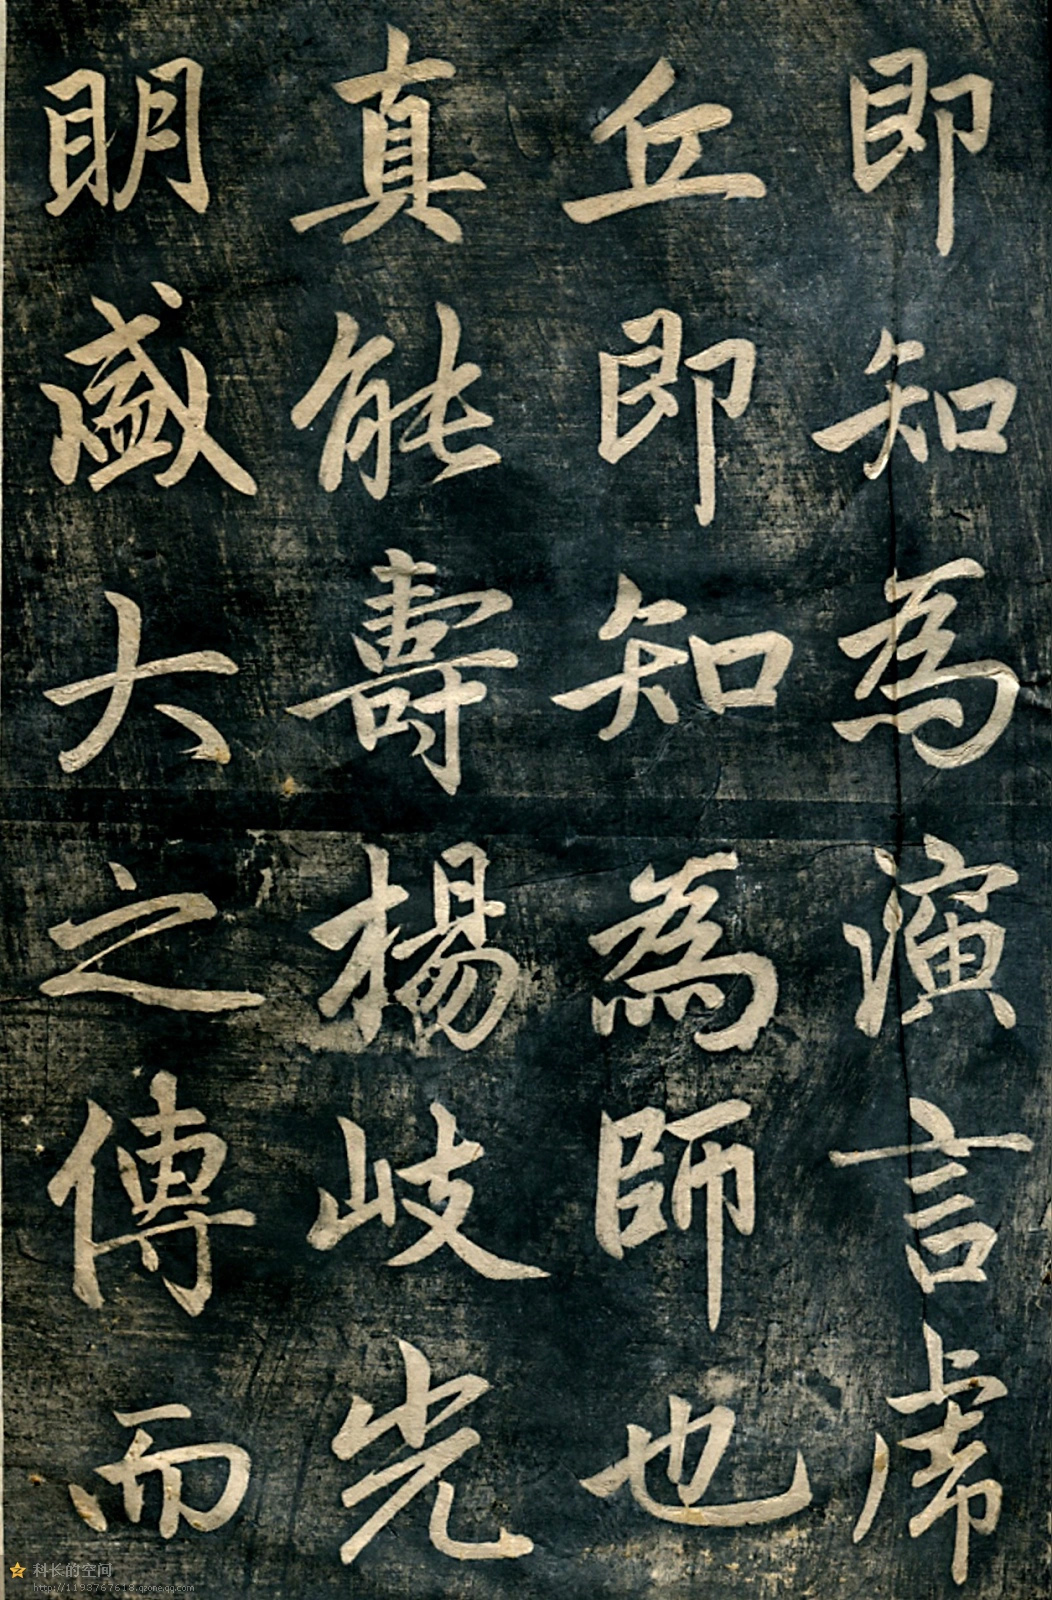 即知為演言虎
丘即知為師也
真能壽楊岐光
明盛大之傳而
科长的空间
http://1193767618.qzone.qq.com